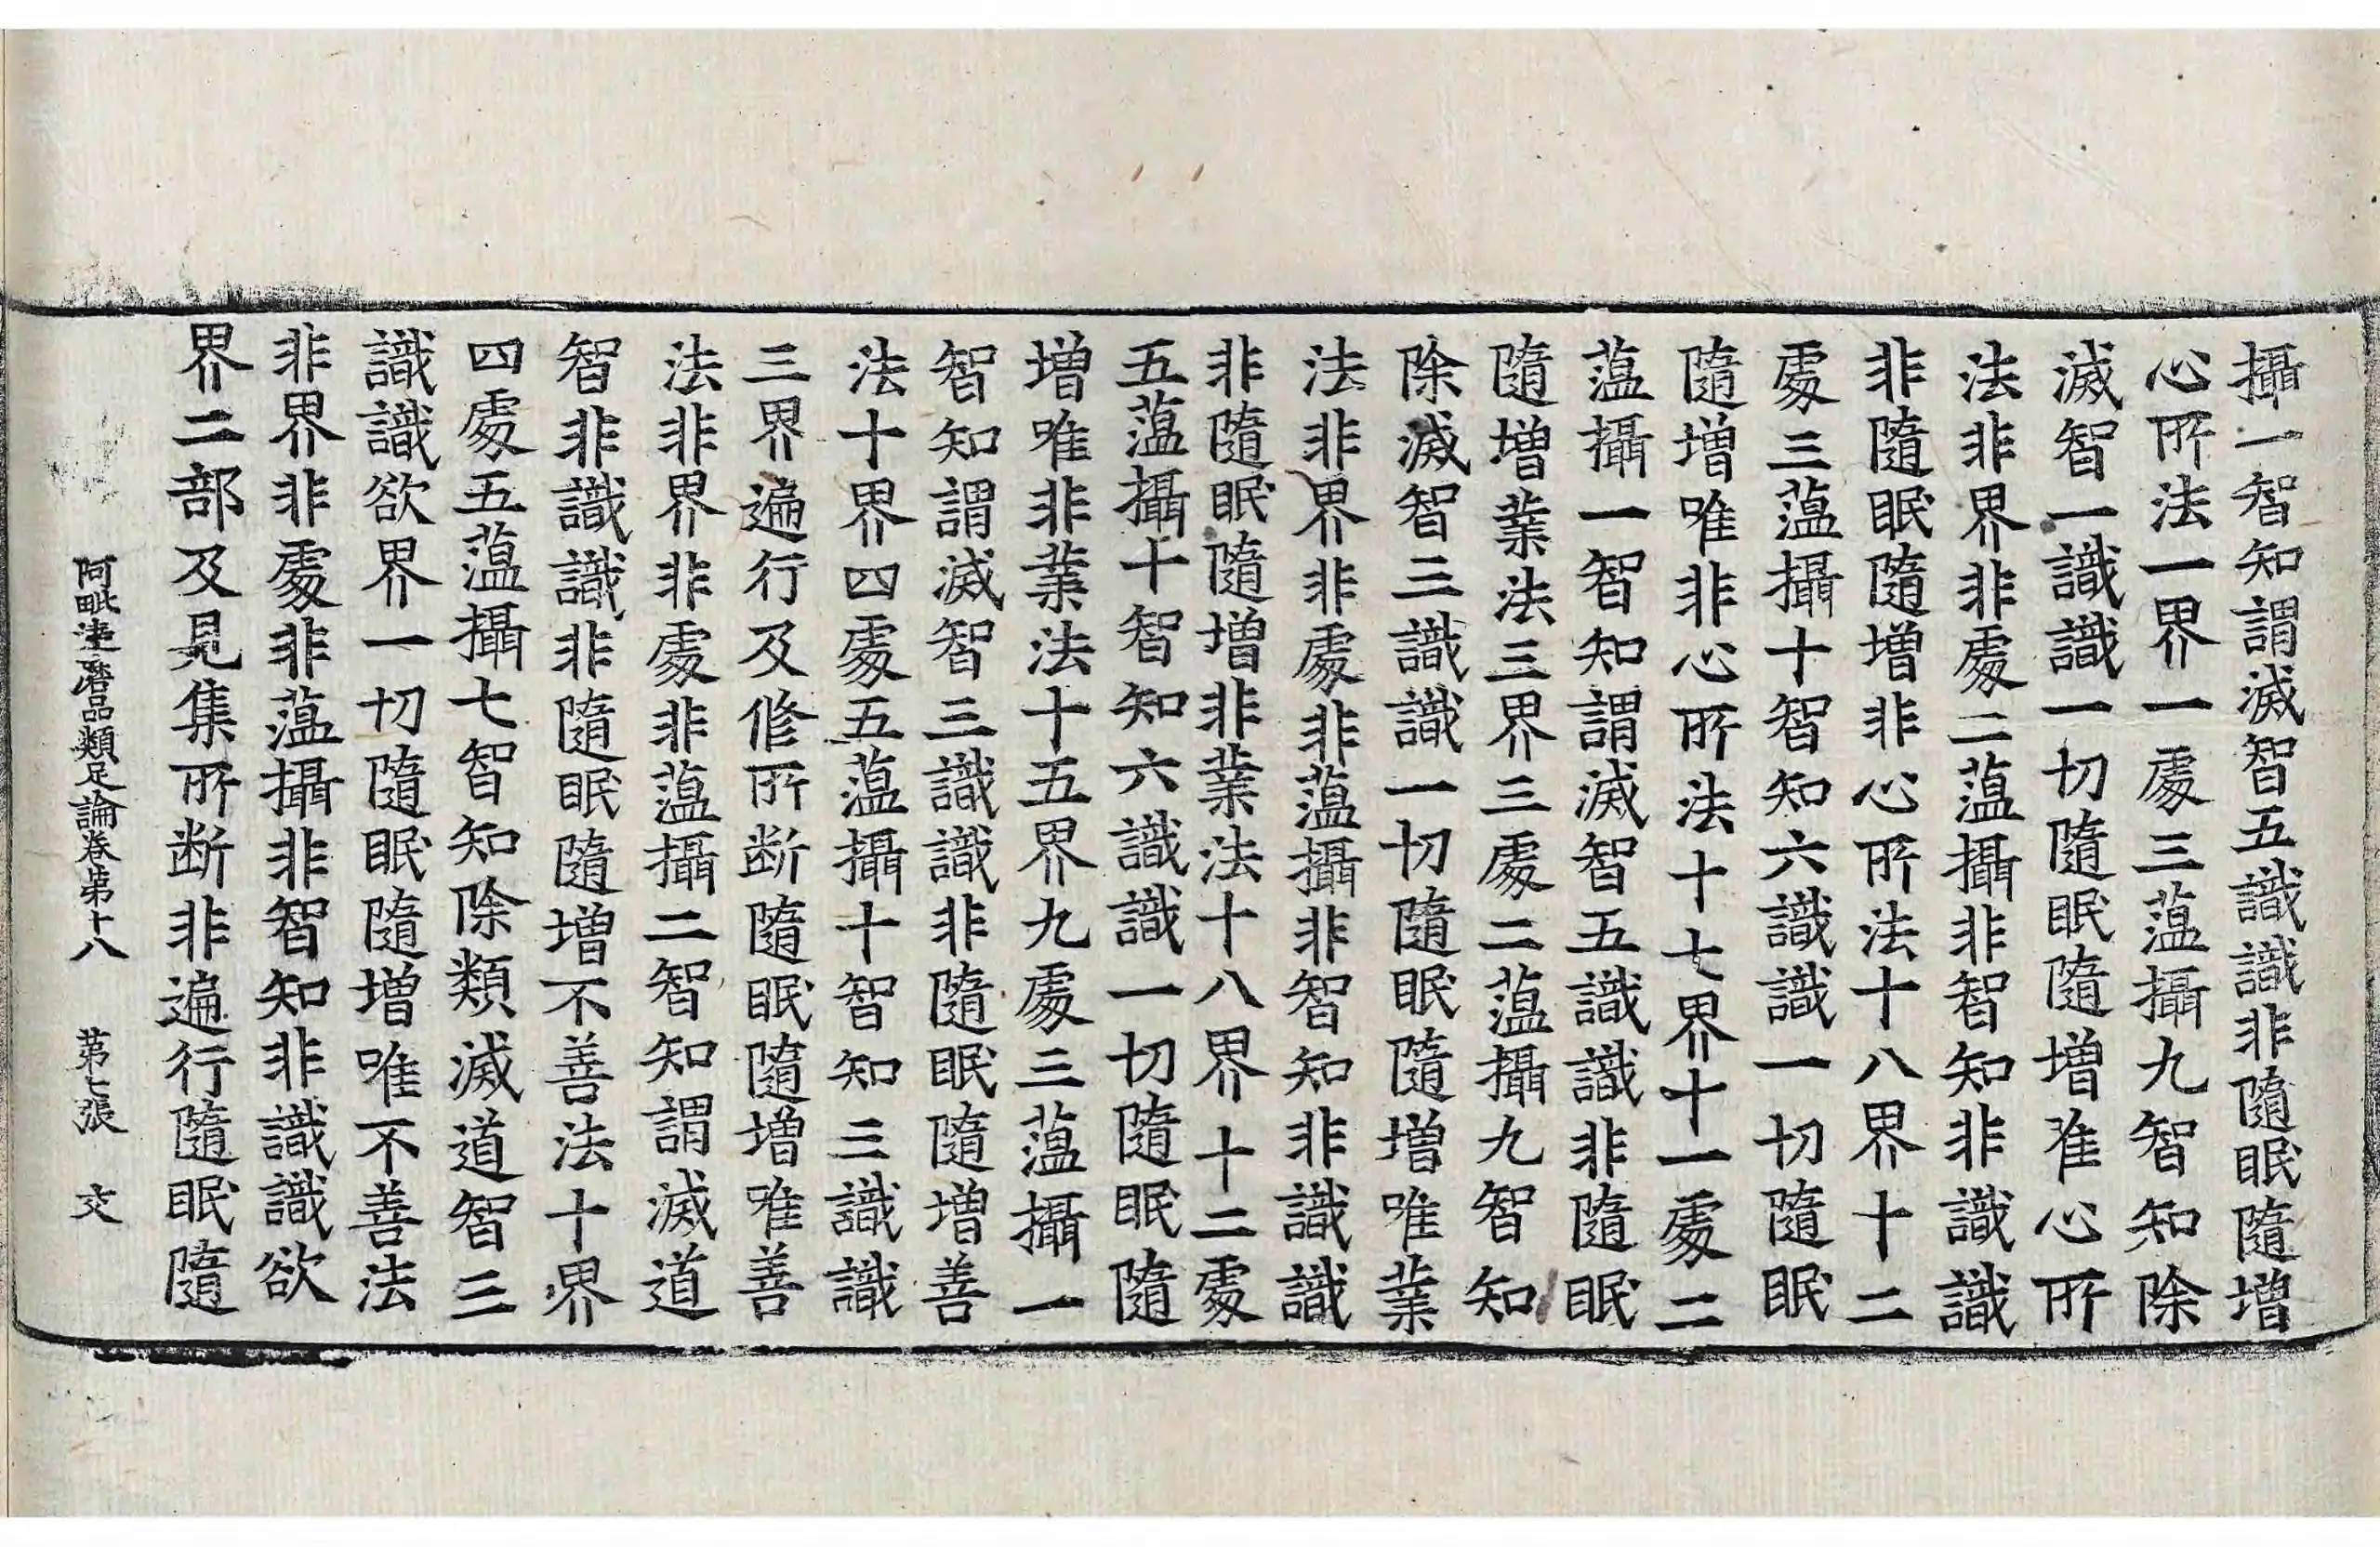 攝一智知謂滅智五識識非隨眠隨增
心所法一界一處三蘊攝九智知除
滅智一識識一切隨眠隨增唯心所
法非界非處二蘊攝非智知非識識
非隨眠隨增非心所法十八界十二
處三蘊攝十智知六識識一切隨眠
隨增唯非心所法十七界十一處二
蘊攝一智知謂滅智五識識非隨眠
隨增業法三界三處二蘊攝九智知
除滅智三識識一切隨眠隨增唯業
法非界非處非蘊攝非智知非識識
非隨眠隨增非業法十八界十二處
五蘊攝十智知六識識一切隨眠隨
增唯非業法十五界九處三蘊攝一
智知謂滅智三識識非隨眠隨增善
法十界四處五蘊攝十智知三識識
三界遍行及修所断隨眠隨增唯善
法非界非處非蘊攝二智知謂滅道
智非識識非隨眠隨增不善法十界
四處五蘊攝七智知除類滅道智三
識識欲界一切隨眠隨增唯不善法
非界非處非蘊攝非智知非識識欲
界二部及見集所断非遍行隨眠隨
阿毗達磨品類足論卷第十八 第七張 交